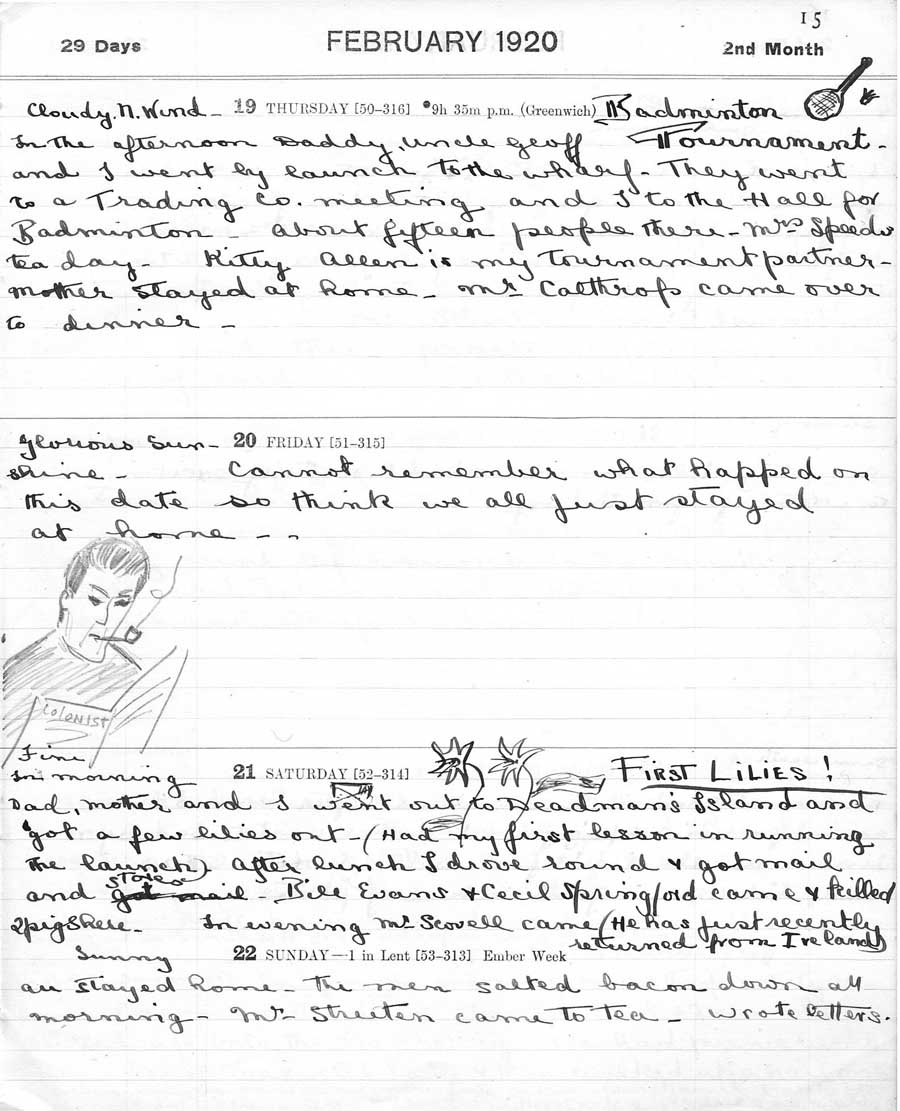 15
29 Days FEBRUARY 1920 2nd Month
Cloudy. N. Wind - 19 THURSDAY [50-316] 9h 35m p.m. (Greenwich) Badminton
In the afternoon Daddy, Uncle Geoff Tournament -
and I went by launch to the wharf - They went
to a Trading Co. meeting and I to the Hall for
Badminton - About fifteen people there - Mrs Speeds
tea day - Kitty Allen is my Tournament partner -
Mother stayed at home - Mr Calthrop came over
to dinner -
Glorious Sun- 20 FRIDAY [51-315]
shine - Cannot remember what happed on
this date so think we all just stayed
at home - -
COLONIST
Fine
In morning 21 SATURDAY [52-314] FIRST LILIES!
Dad, Mother and I went out to Deadman's Island and
got a few lilies out - (Had my first lesson in running
the launch) After lunch I drove round & got mail
and stores got mail - Bill Evans & Cecil Springford came & killed
2 pigs here - In evening Mr Scovell came (He has just recently
returned from Ireland)
Sunny 22 SUNDAY—1 in Lent [53-313] Ember Week
all stayed home - The men salted bacon down all
morning - Mr Streeten came to tea - wrote letters.